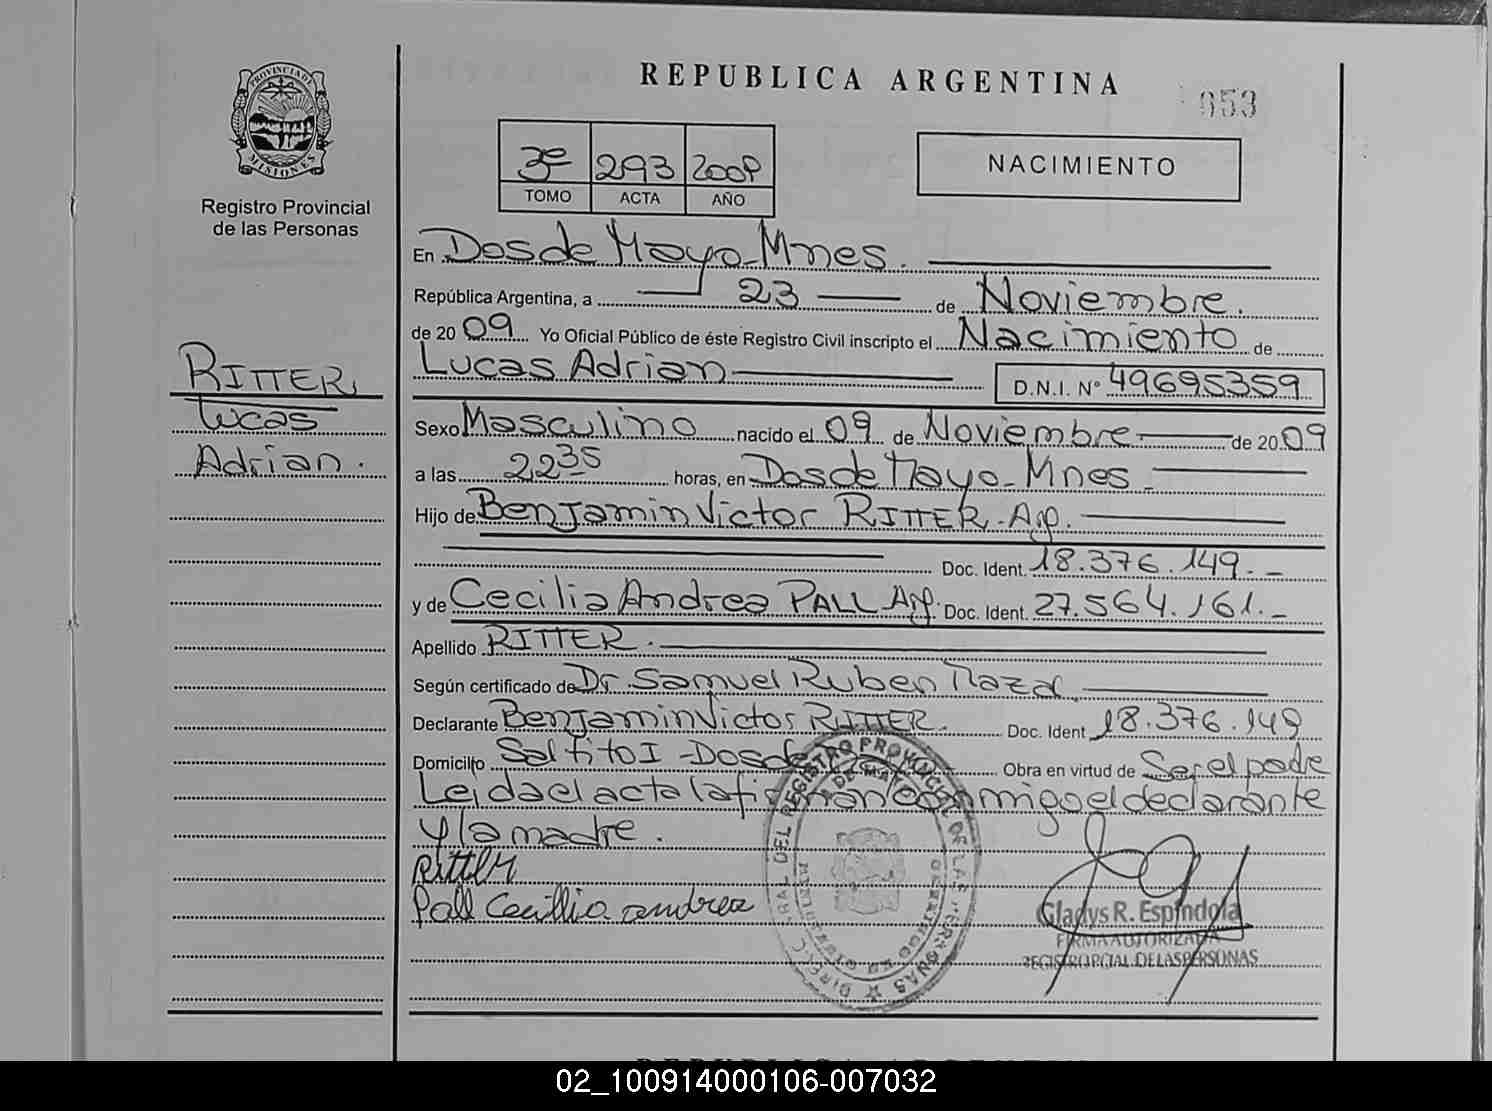 REPUBLICA ARGENTINA
053
PROVINCIA DE MISIONES
Registro Provincial
de las Personas
3º 293 2009
TOMO ACTA AÑO
NACIMIENTO
En Dos de Mayo - Mnes.
República Argentina, a 23 de Noviembre.
de 2009 Yo Oficial Público de éste Registro Civil inscripto el Nacimiento de
Lucas Adrian D.N.I. Nº 49695359
RITTER,
Lucas
Adrian.
Sexo Masculino nacido el 09 de Noviembre de 2009
a las 22 35 horas, en Dos de Mayo - Mnes -
Hijo de Benjamin Victor RITTER - Arg.
Doc. Ident. 18.376.149. -
y de Cecilia Andrea PALL Arg. Doc. Ident. 27.564.161. -
Apellido RITTER.
Según certificado de Dr. Samuel Ruben
Declarante Benjamin Victor RITTER. Doc. Ident 18.376.149
Domicilio Saltito I - Dos de Mayo Obra en virtud de Ser el padre
Leida el acta la firman conmigo el declarante
y la madre.
Ritter
Pall Cecillia andrea
Gladys R. Espindola
FIRMA AUTORIZADA
REGISTRO PCIAL. DE LAS PERSONAS
02_100914000106-007032